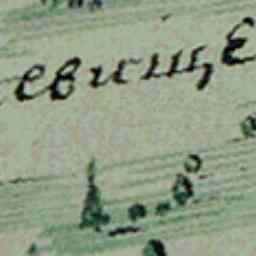 евище